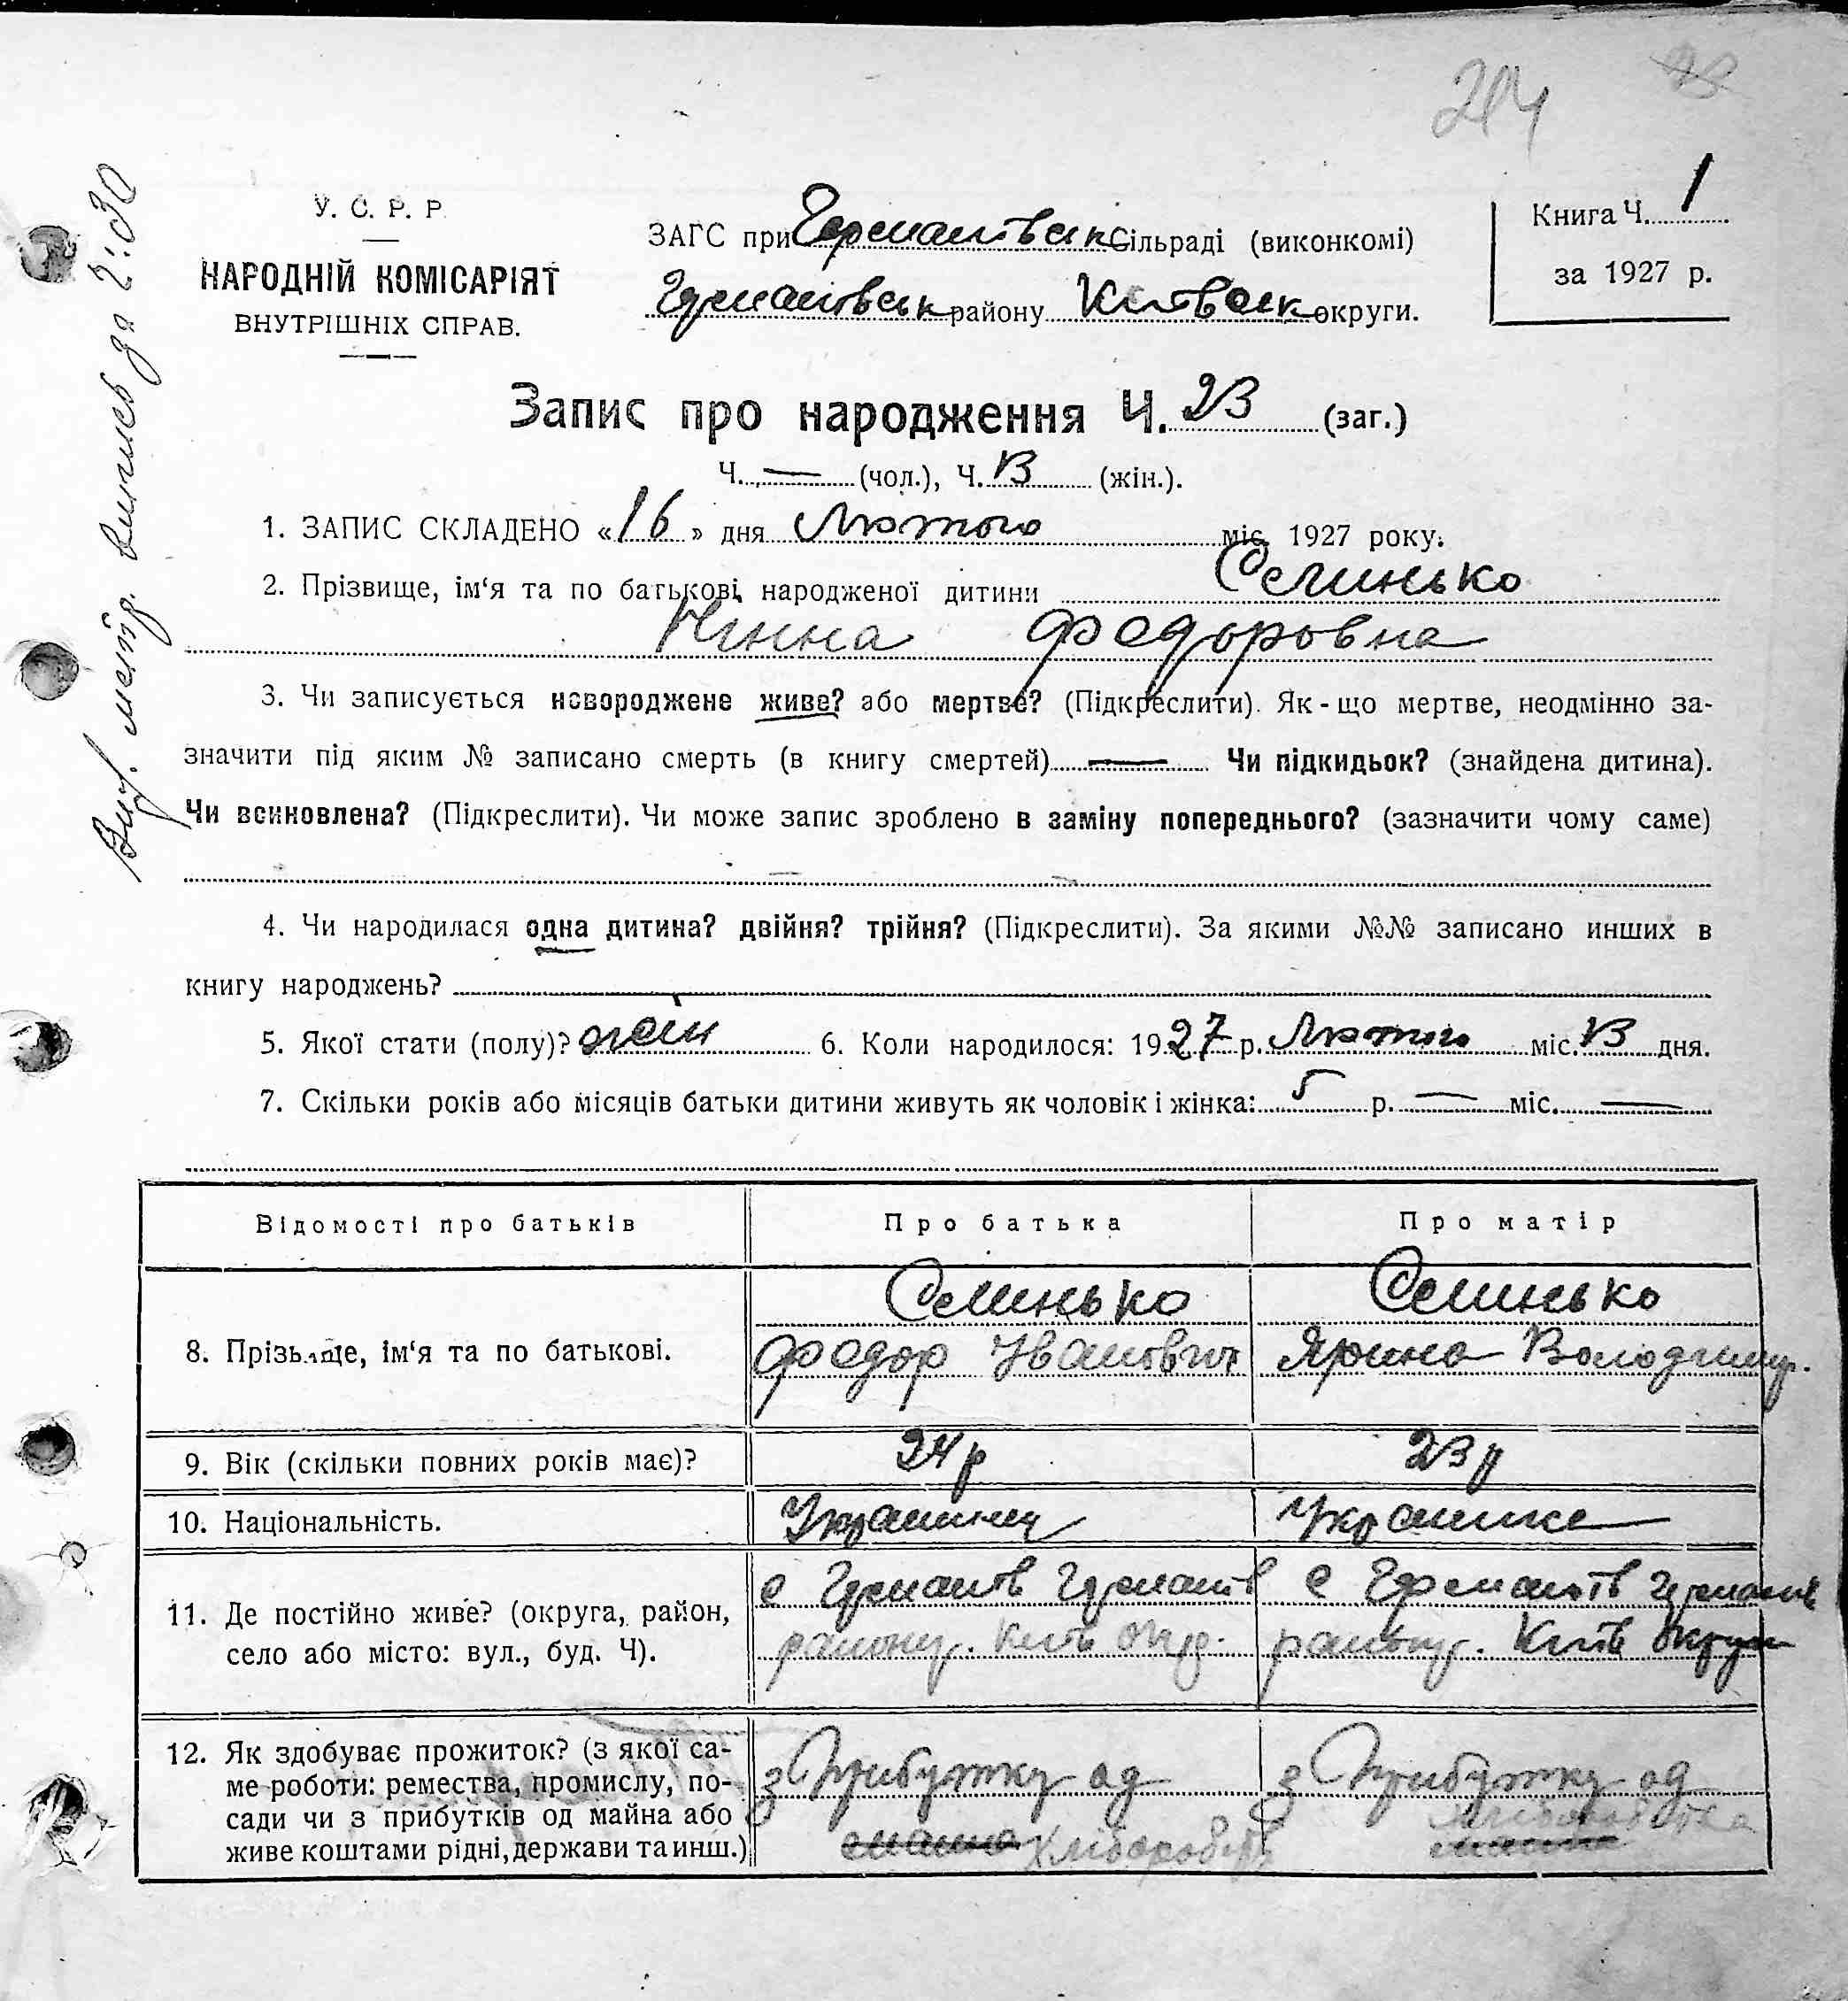 204 28
Вид. метр. виписъ да 2:30
У. С. Р. Р.
НАРОДНІЙ КОМІСАРІЯТ
ВНУТРІШНІХ СПРАВ.
ЗАГС при Германівськ сільраді (виконкомі)
Германівськ району Київськ округи.
Книга Ч. 1
за 1927 р.
Запис про народження Ч. 23 (заг.)
Ч. — (чол.), Ч. 13 (жін.).
1. ЗАПИС СКЛАДЕНО «16» дня Лютого міс. 1927 року.
2. Прізвище, ім‘я та по батькові народженої дитини Селинько
Нинна Федоровна
3. Чи записується новороджене живе? або мертве? (Підкреслити). Як-що мертве, неодмінно за-
значити під яким № записано смерть (в книгу смертей) — Чи підкидьок? (знайдена дитина).
Чи всиновлена? (Підкреслити). Чи може запис зроблено в заміну попереднього? (зазначити чому саме)
4. Чи народилася одна дитина? двійня? трійня? (Підкреслити). За якими №№ записано инших в
книгу народжень?
5. Якої стати (полу)? жін 6. Коли народилося: 1927 р. Лютого міс. 13 дня.
7. Скільки років або місяців батьки дитини живуть як чоловік і жінка: 5 р. — міс. —
Відомості про батьків Про батька Про матір
8. Прізвище, ім‘я та по батькові. Селинько Федор Іванович Селинько Ярина Володимир.
9. Вік (скільки повних років має)? 24 р 23 р
10. Національність. Українец Українка
11. Де постійно живе? (округа, район,
село або місто: вул., буд. Ч).
с Германів Германів
району. Київ окр.
с Германів Германів
району. Київ округи
12. Як здобуває прожиток? (з якої са-
ме роботи: ремества, промислу, по-
сади чи з прибутків од майна або
живе коштами рідні, держави та инш.)
з Прибутку од
майна хлібороб
з Прибутку од
хліборобка
майна